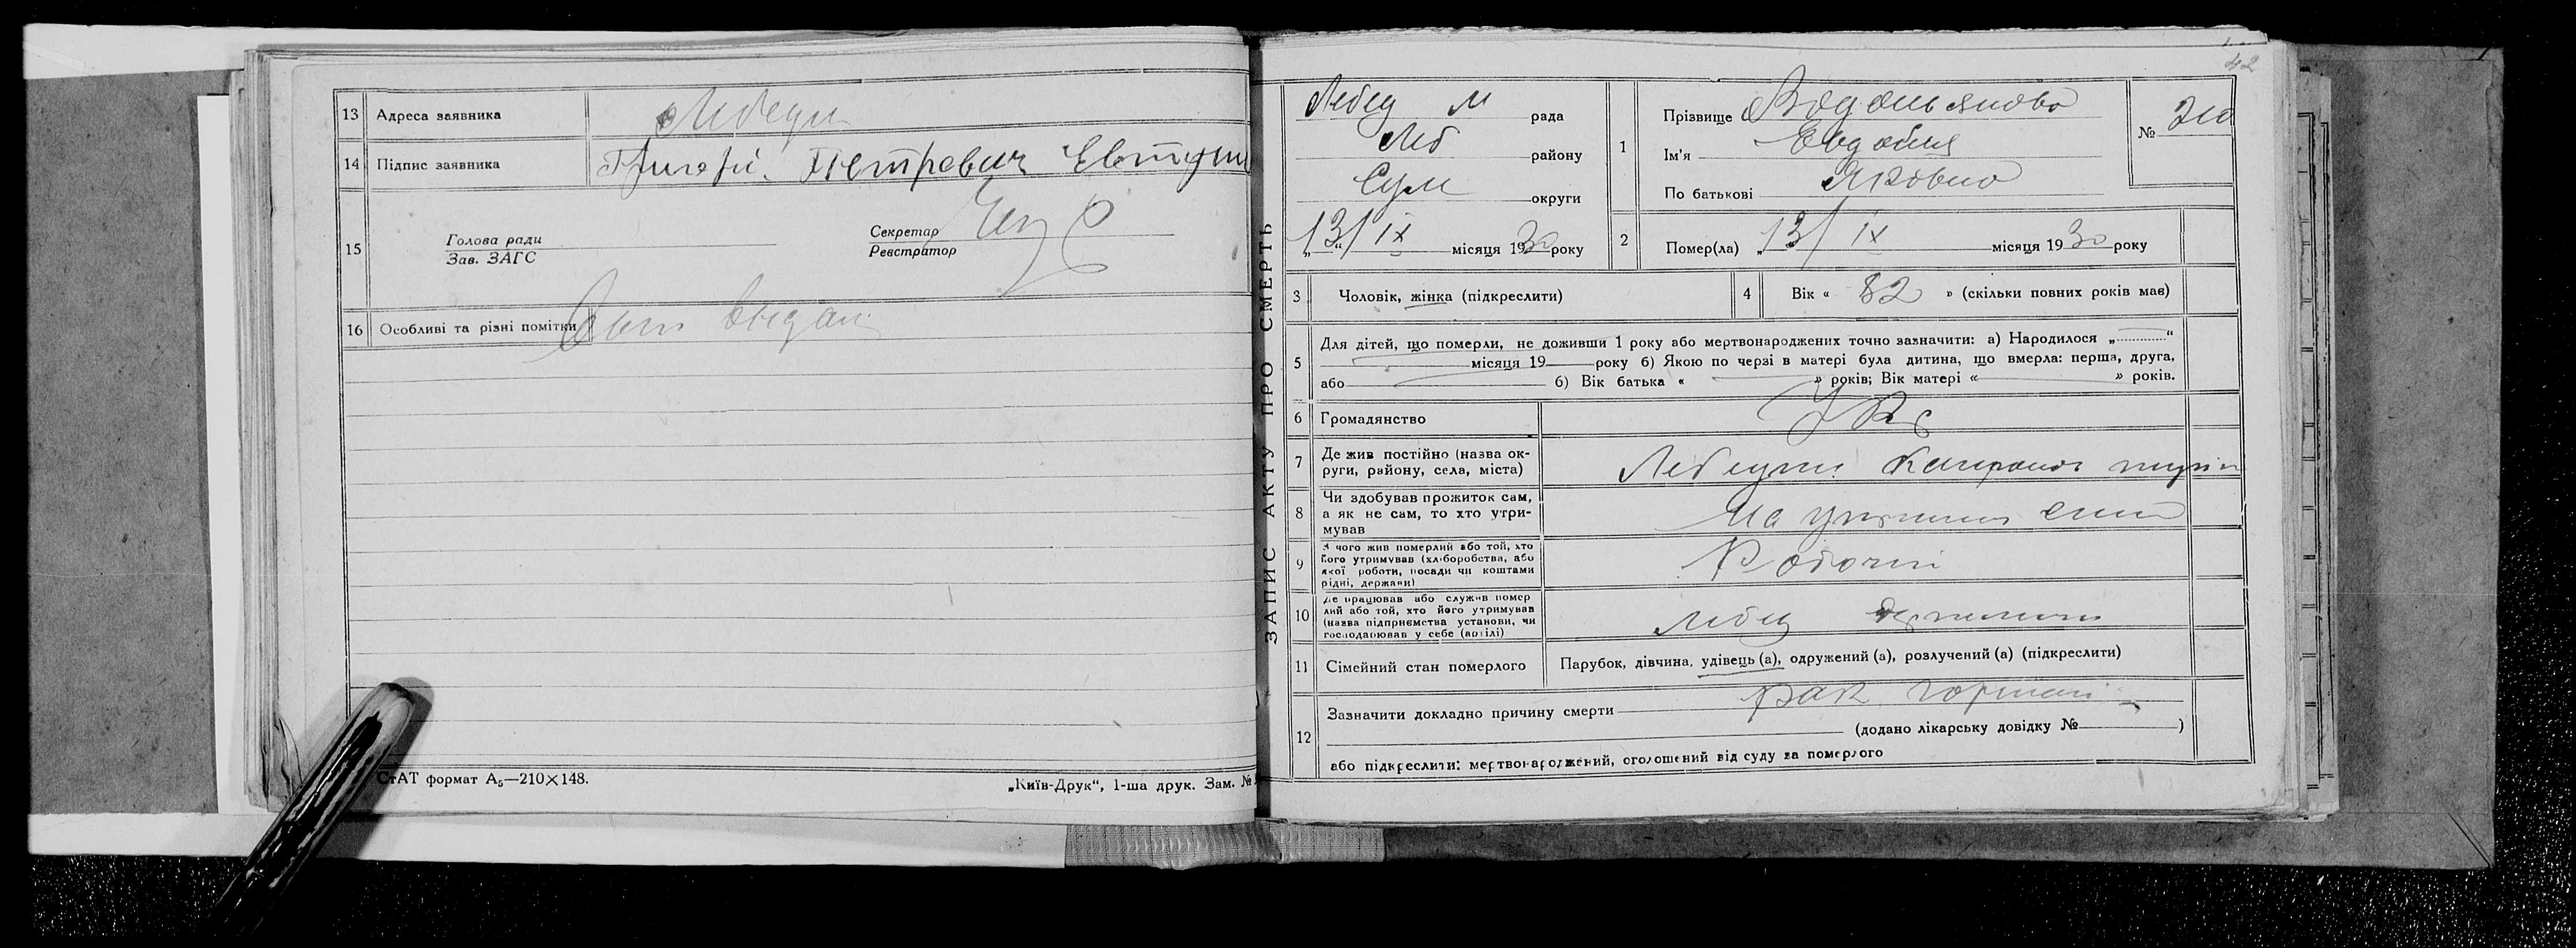 13 Адреса заявника Лебедин
14 Підпис заявника Григорій Петрович
15 Голова ради
Зав. ЗАГС
Секретар
Реєстратор
16 Особливі та різні помітки
СтАТ формат А5—210×148.
„Київ-Друк“, 1-ша друк. Зам. №
42
ЗАПИС АКТУ ПРО СМЕРТЬ
Лебед М рада
Леб району
Сум округи
„13/“ IX місяця 1930 року
1 Прізвище Водольянова
Ім'я Евдокия
По батькові Яковна
№ 210
2 Помер(ла) „13/ IX місяця 1930 року
3 Чоловік, жінка (підкреслити)
4 Вік « 82 » (скільки повних років мав)
5 Для дітей, що померли, не доживши 1 року або мертвонароджених точно зазначити: а) Народилося „ “
місяця 19 року б) Якою по черзі в матері була дитина, що вмерла: перша, друга,
або б) Вік батька « » років; Вік матері « » років.
6 Громадянство
7 Де жив постійно (назва ок-
руги, району, села, міста)
Лебедин
8 Чи здобував прожиток сам,
а як не сам, то хто утри-
мував
На
9 З чого жив померлий або той, хто
його утримував (хліборобства, або
якої роботи, посади чи коштами
рідні, держави)
Робочий
10 Де працював або служив помер
лий або той, хто його утримував
(назва підприємства установи, чи
господарював у себе (артілі)
Лебед
11 Сімейний стан померлого Парубок, дівчина, удівець (а), одружений (а), розлучений (а) (підкреслити)
12 Зазначити докладно причину смерти рак гортані
(додано лікарську довідку № )
або підкреслити: мертвонароджений, оголошений від суду за померлого